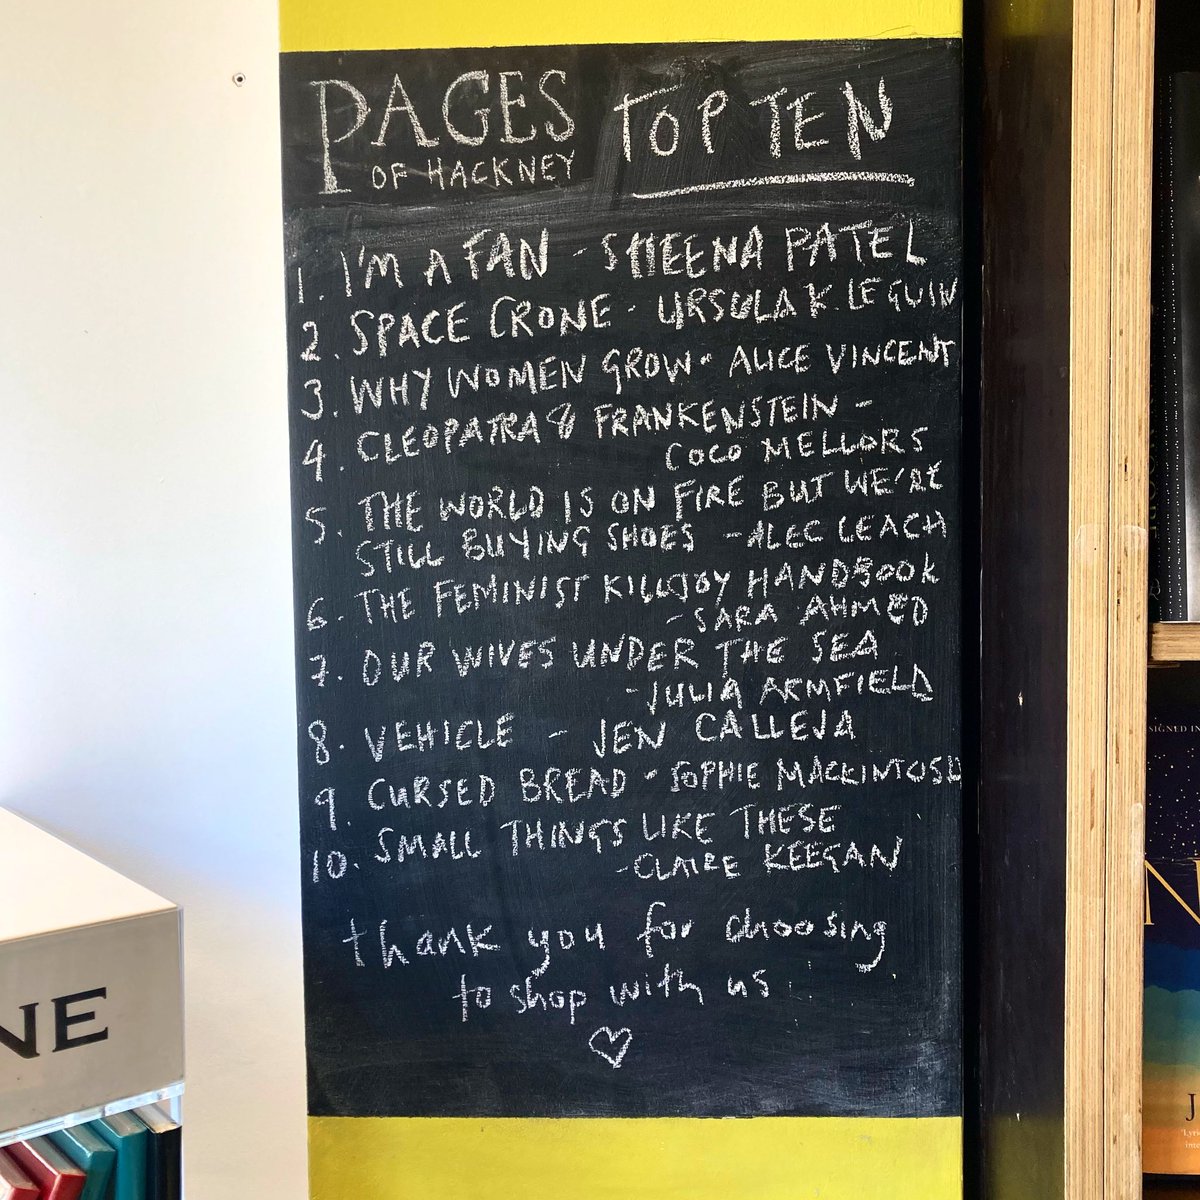 PAGES
OF HACKNEY
TOP TEN
1. I'M A FAN - SHEENA PATEL
2. SPACE CRONE - URSULA K. LE GUIN
3. WHY WOMEN GROW - ALICE VINCENT
4. CLEOPATRA & FRANKENSTEIN -
COCO MELLORS
5. THE WORLD IS ON FIRE BUT WE'RE
STILL BUYING SHOES - ALEC LEACH
6. THE FEMINIST KILLJOY HANDBOOK
- SARA AHMED
7. OUR WIVES UNDER THE SEA
- JULIA ARMFIELD
8. VEHICLE - JEN CALLEJA
9. CURSED BREAD - SOPHIE MACKINTOSH
10. SMALL THINGS LIKE THESE
- CLAIRE KEEGAN
thank you for choosing
to shop with us
NE
SIGNED IN
N
J